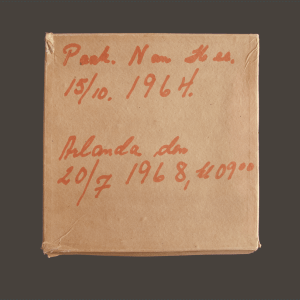 Pack. Nan
15/10. 1964.
Arlanda den
20/7 1968, kl 09⁰⁰